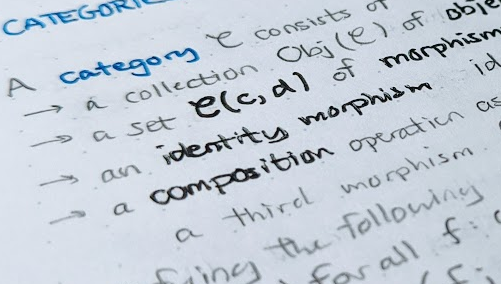 CATEGORIE
A category C consists of
→ a collection Obj(C) of obje
→ a set C(c,d) of morphism
→ an identity morphism id
→ a composition operation as
a third morphism
fying the following
for all f: c